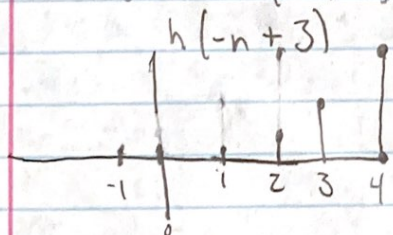 h(-n + 3)
-1 1 2 3 4